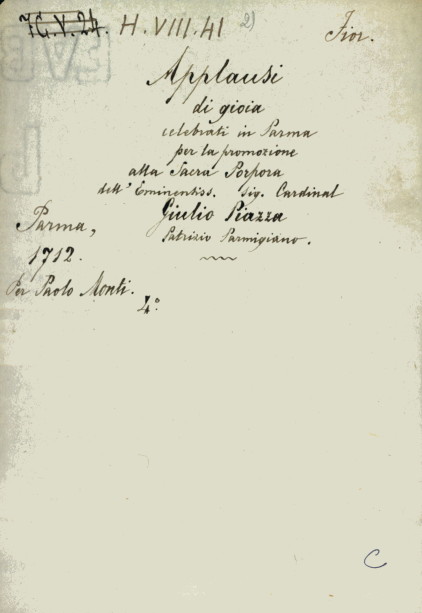 7C.V.24. H.VIII.41 2) Fior.
Applausi
di gioia
celebrati in Parma
per la promozione
alla Sacra Porpora
dell' Eminentiss. sig. Cardinal
Giulio Piazza
Patrizio Parmigiano.
Parma,
1712.
Per Paolo Monti.
4.°
C